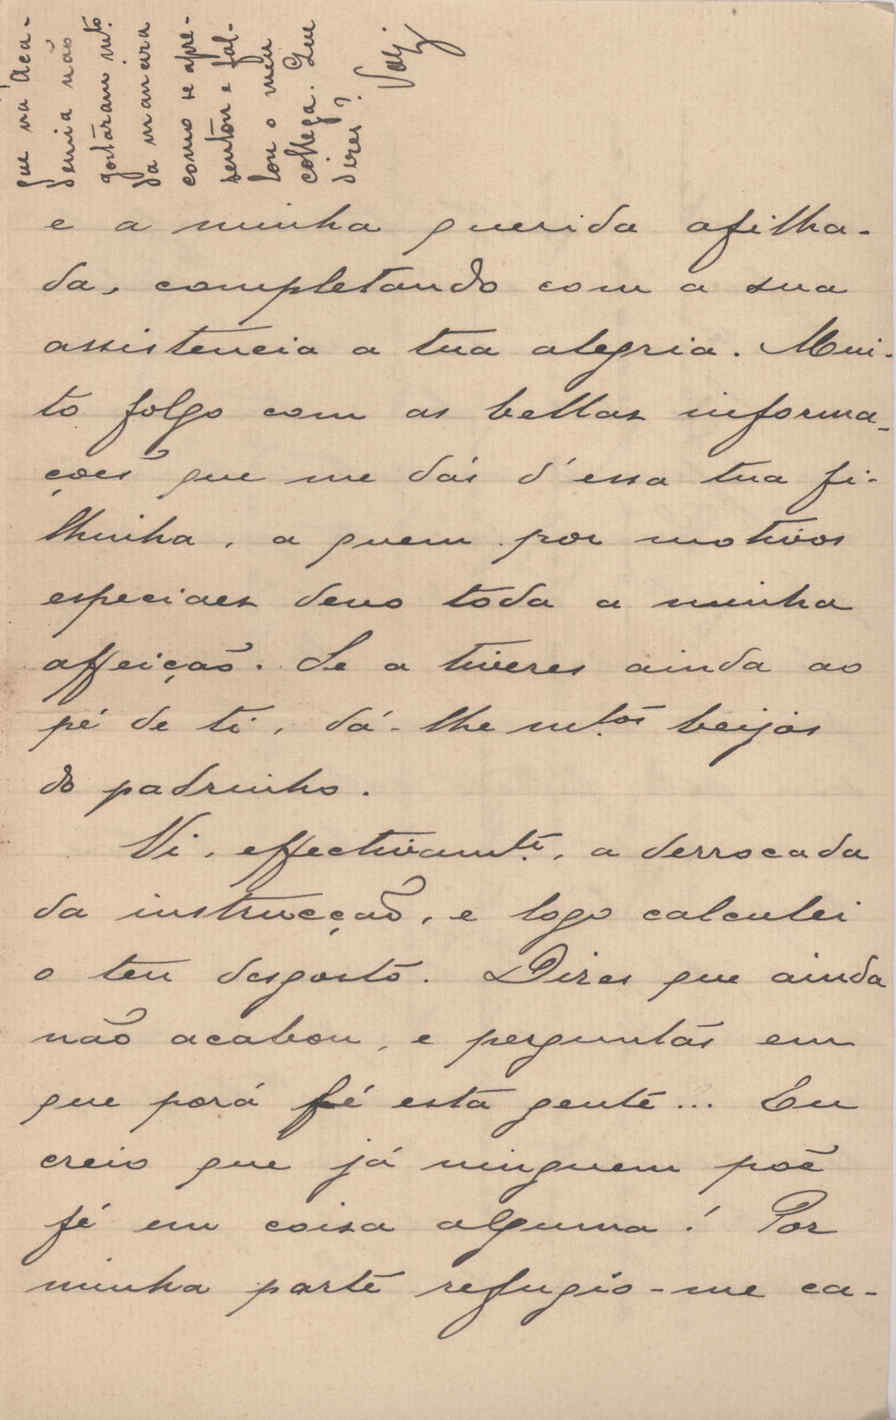 que na Aca-
demia não
gostáram mto
da maneira
como se apre-
sentou e fal-
lou o meu
collega. Que
dizes?
e a minha querida afilha-
da, completando com a sua
assistencia a tua alegria. Mui-
to folgo com as bellas informa-
ções que me dás d'essa tua fi-
lhinha, a quem por motivos
especiaes devo toda a minha
affeição. Se a tiveres ainda ao
pé de ti, dá-lhe mtos beijos
do padrinho.
Vi, effectivamte, a derrocada
da instrucção, e logo calculei
o teu desgosto. Dizes que ainda
não acabou, e perguntas em
que porá fé esta gente... Eu
creio que já ninguem põe
fé em coisa alguma! Por
minha parte refugio-me ca-